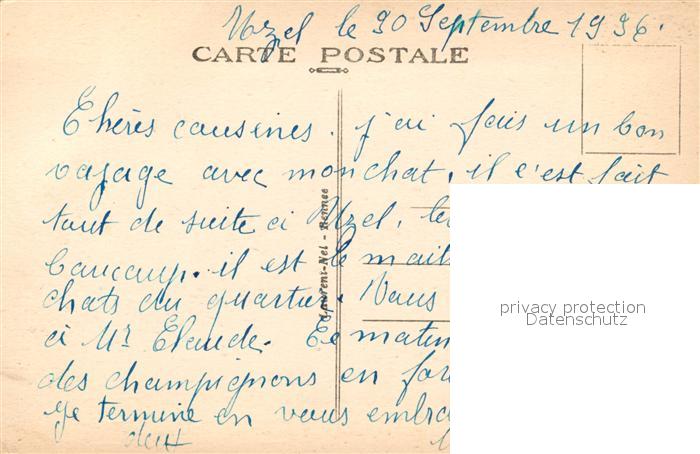 Uzel le 30 Septembre 1936.
CARTE POSTALE
Chères cousines. j'ai fais un bon
voyage avec mon chat, il c'est fait
tout de suite a Uzel, le
beaucoup. il est le mait
chats du quartier. Vous
a Mr Claude. Ce matin
des champignons en for
Je termine en vous embra
deux
Laurent-Nel - Rennes
privacy protection
Datenschutz